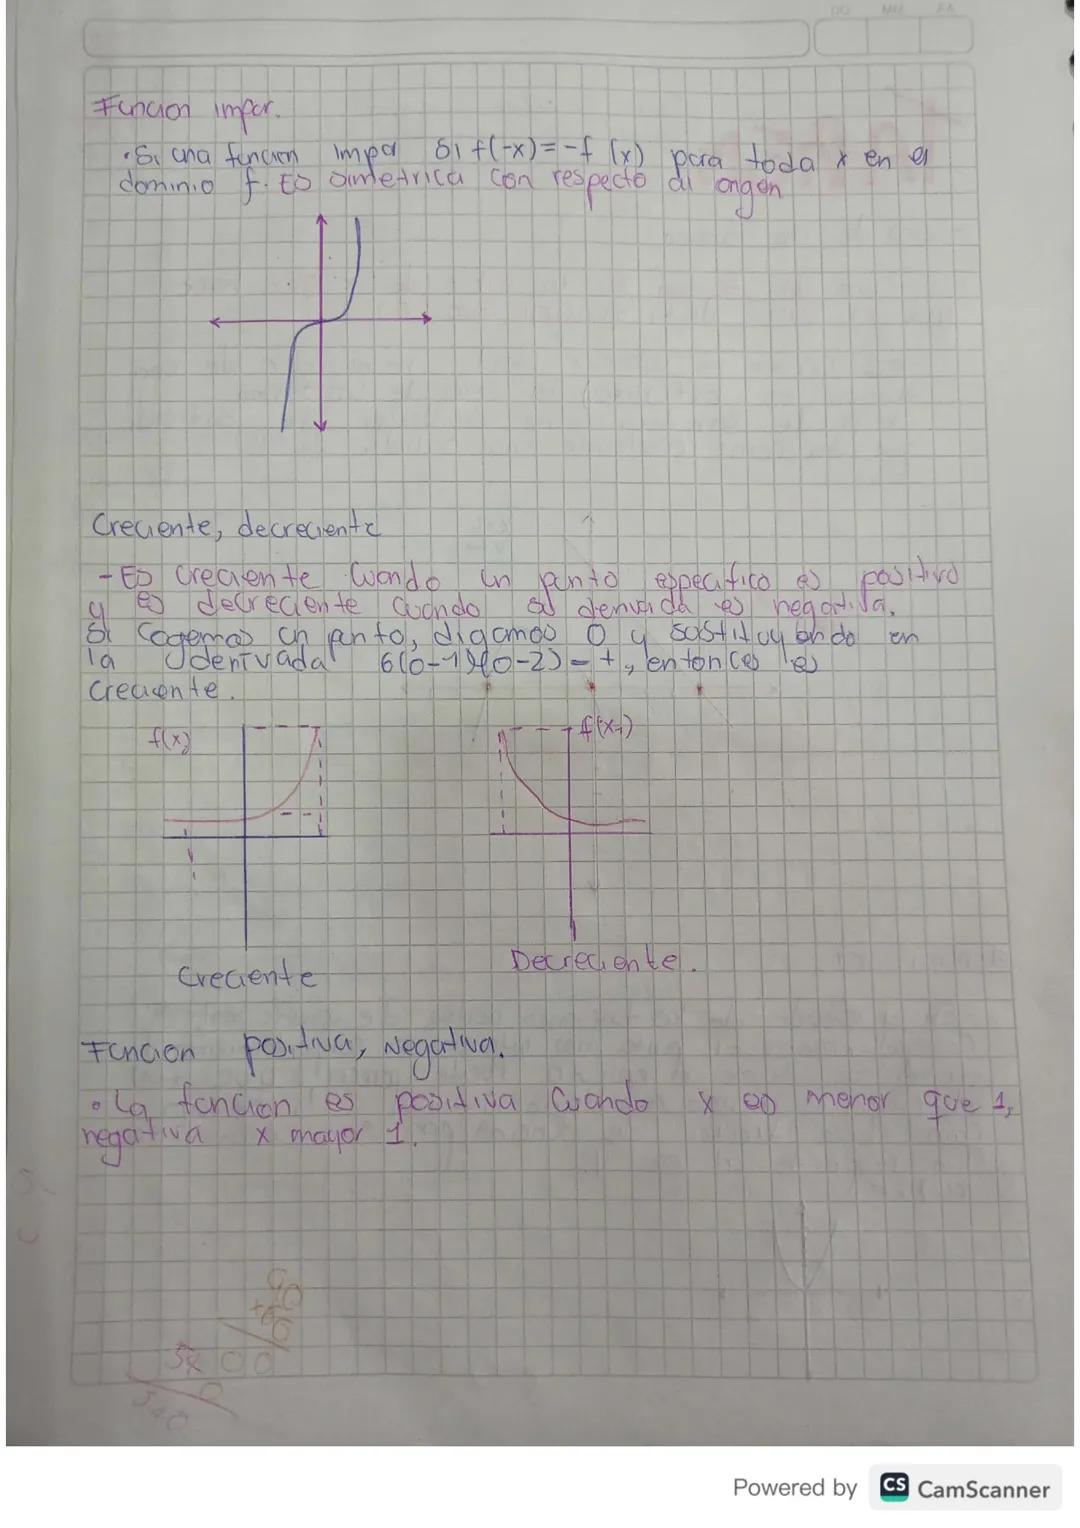 DD MM AA
Función impar.
• Si una función impar si f(-x)=-f (x) para toda x en el
dominio f. Es simetrica con respecto al origen
Creciente, decreciente
- Es creciente cuando un punto especifico es positivo
y es decreciente cuando su derivada es negativa.
Si cogemos un punto, digamos 0 y sustituyendo en
la derivada 6(0-1)(0-2) = +, entonces es
creciente.
f(x)
f(x1)
Creciente
Decreciente.
Función positiva, Negativa.
• La función es positiva cuando x es menor que 1,
negativa x mayor 1.
Powered by CS CamScanner